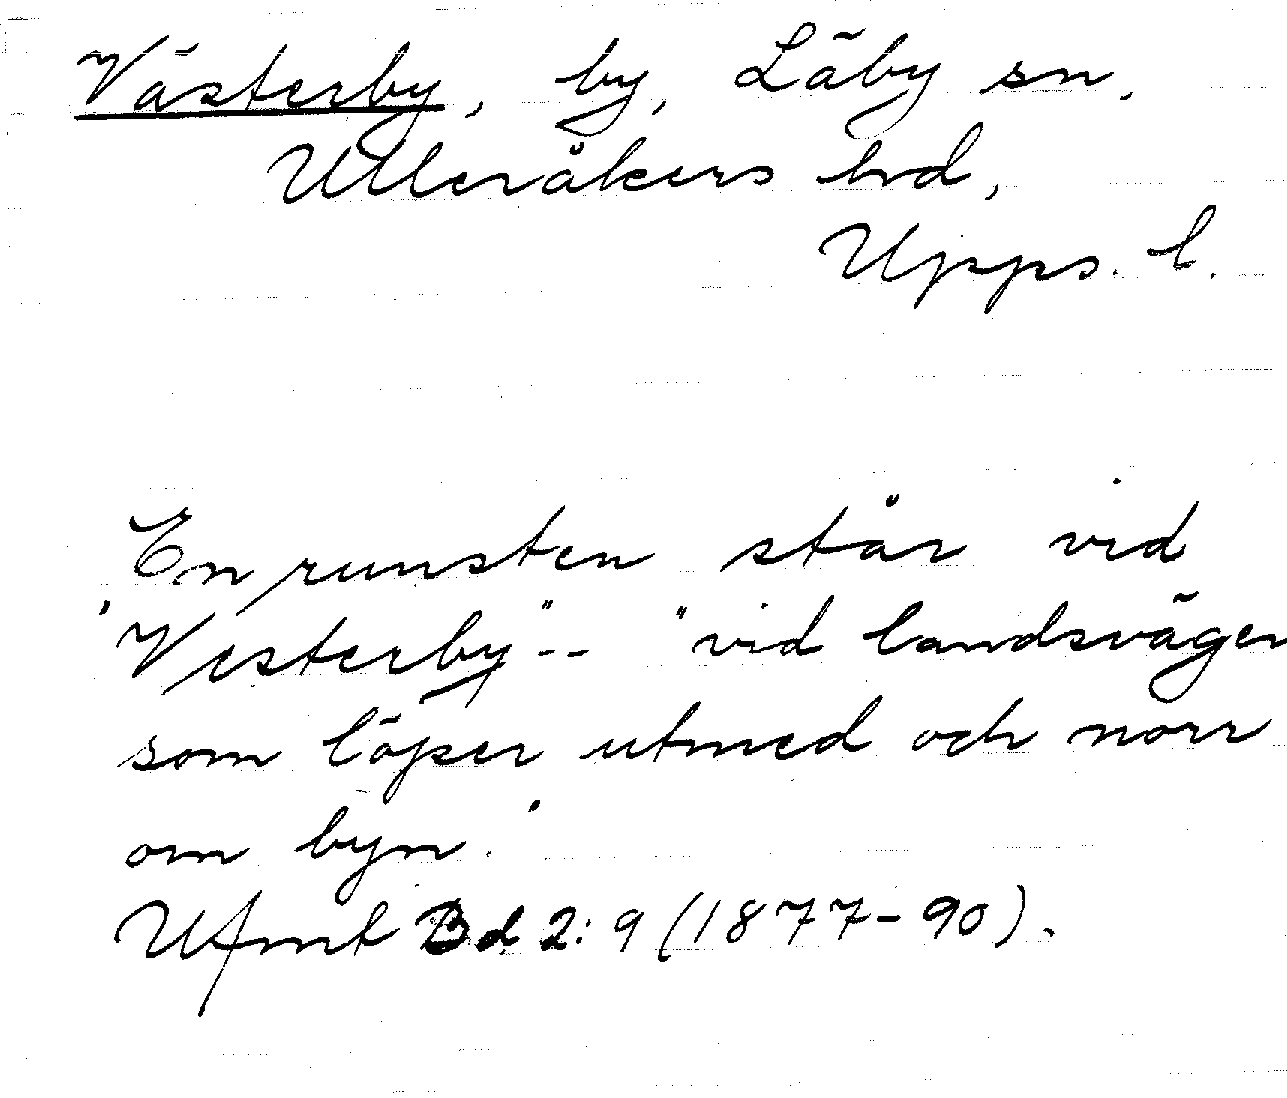 Västerby, by, Läby sn,
Ulleråkers hd,
Upps. l.
En runsten står vid
"Vesterby"-- "vid landsvägen
som löper utmed och norr
om byn."
Ufmt Bd 2:9 (1877-90).